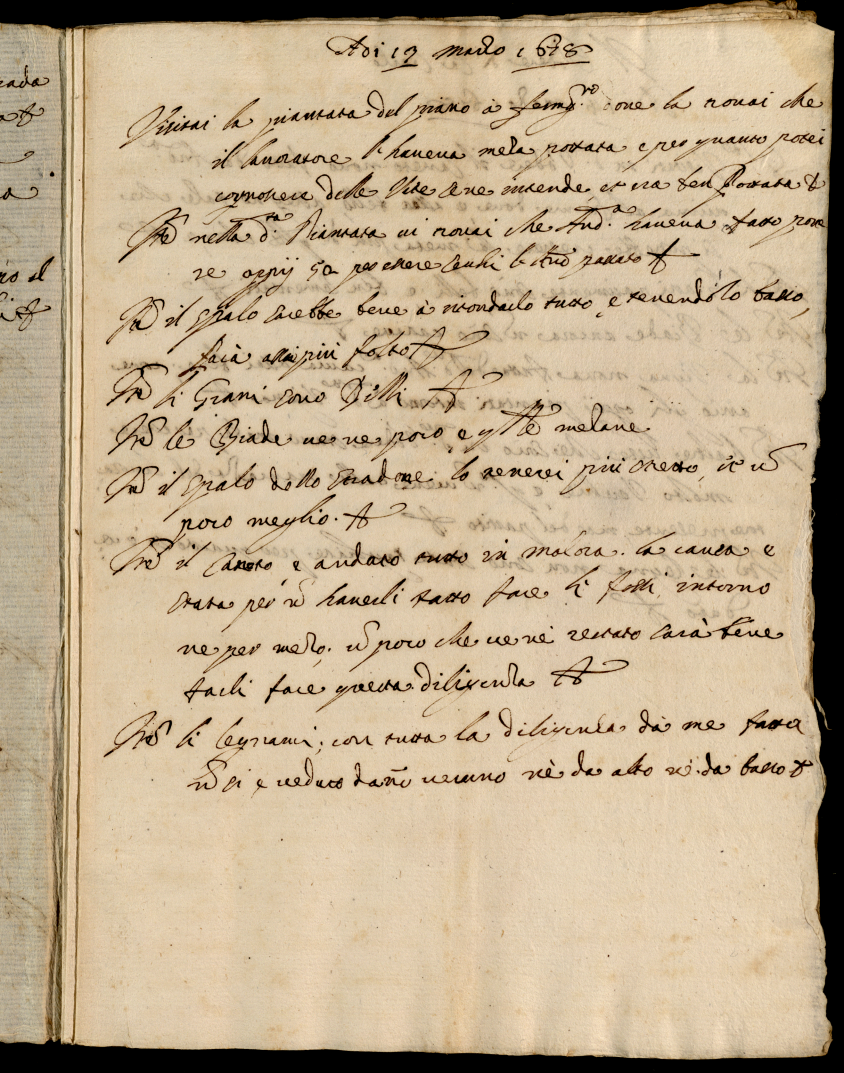 Adi 12 marzo 1678
Visitai la piantata del piano à done la trouai che
il lauoratore l'haueua meza pottata e per quanto potei
cognoscere delle Vite se ne intende, et era ben Pottata
Itē nella d.ta Piantata ui trouai che And.a haueua fatto pore
re oppij 50 per essere secchi passato
Itē il spalo sarebbe bene à ritondarlo tutto, e tenendolo basso,
farà assai più folto
Itē li Grani sono Belli
Itē le Biade ue ne poco e mezane
Itē il spalo dello stradone lo tenerei più stretto, et
poco meglio.
Itē il Caneto e andato tutto in malora. la causa e
stata per nō hauerli fatto fare li fossi intorno
ne per mezo; ū poco che ue nè restato sarà bene
farli fare questa diligenza
Itē li legnami; con tutta la diligenza dà me fatta
nō si e ueduto dano ueruno nè da alto nè da basso